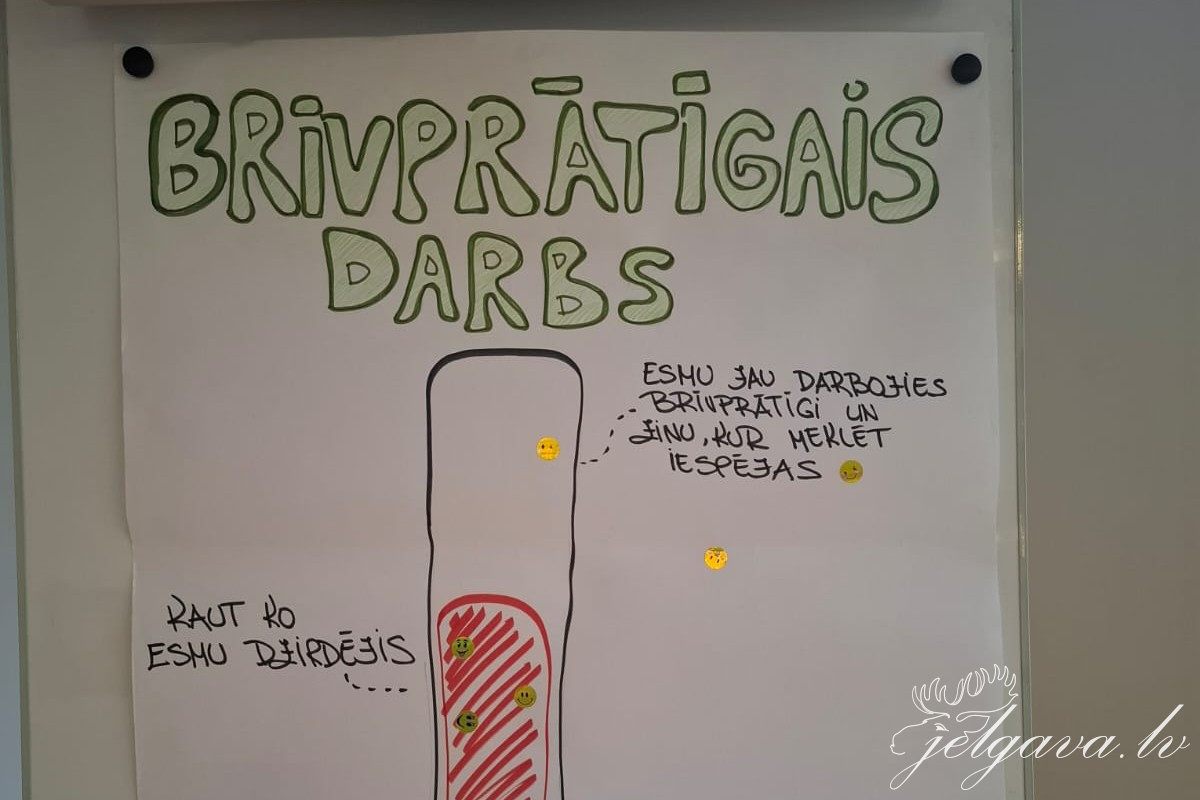 BRĪVPRĀTĪGAIS
DARBS
ESMU JAU DARBOJIES
BRĪVPRĀTĪGI UN
ZINU, KUR MEKLĒT
IESPĒJAS
KAUT KO
ESMU DZIRDĒJIS
jelgava.lv